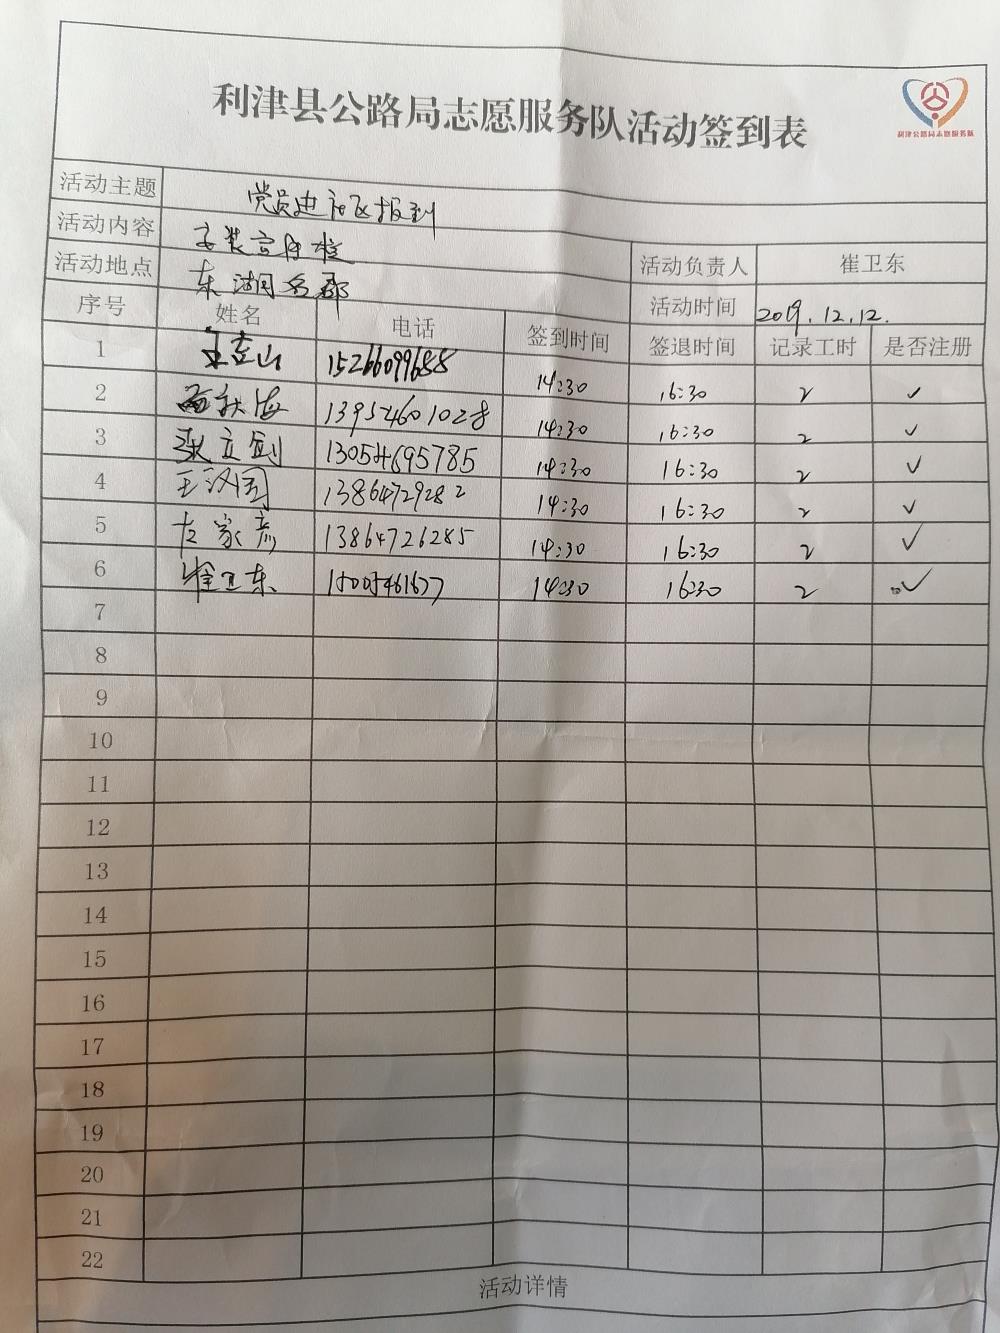 利津县公路局志愿服务队活动签到表
利津公路局志愿服务队
活动主题 党员进社区报到
活动内容
活动地点 东湖名郡 活动负责人 崔卫东
活动时间 2019.12.12.
序号 姓名 电话 签到时间 签退时间 记录工时 是否注册
1 15266099688 14:30 16:30 2 ✓
2 13954601028 14:30 16:30 2 ✓
3 张立剑 13054695785 14:30 16:30 2 ✓
4 王汉国 13864729282 14:30 16:30 2 ✓
5 左家彦 13864726285 14:30 16:30 2 ✓
6 崔卫东 14:30 16:30 2 ✓
7
8
9
10
11
12
13
14
15
16
17
18
19
20
21
22
活动详情